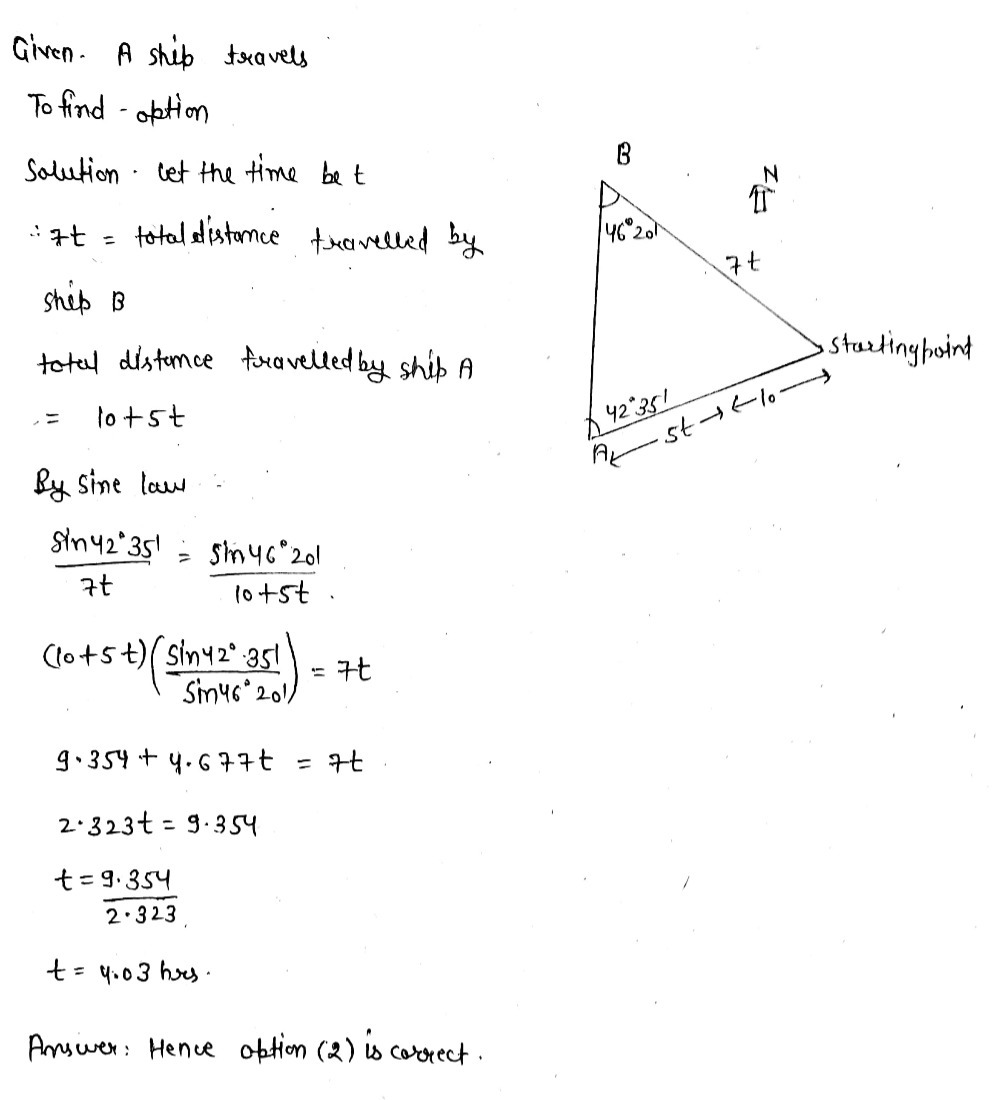 Given. A ship travels
To find - option
Solution. Let the time be t
∴ 7t = total distance travelled by
ship B
total distance travelled by ship A
= 10+5t
By sine law
sin42°35' / 7t = sin46°20' / 10+5t .
(10+5t)(sin42°.35' / sin46°20') = 7t
9.354 + 4.677t = 7t
2.323t = 9.354
t = 9.354 / 2.323
t = 4.03 hrs.
Answer: Hence option (2) is correct.
B
N
46°20'
7t
Starting point
42°35'
A
5t
10